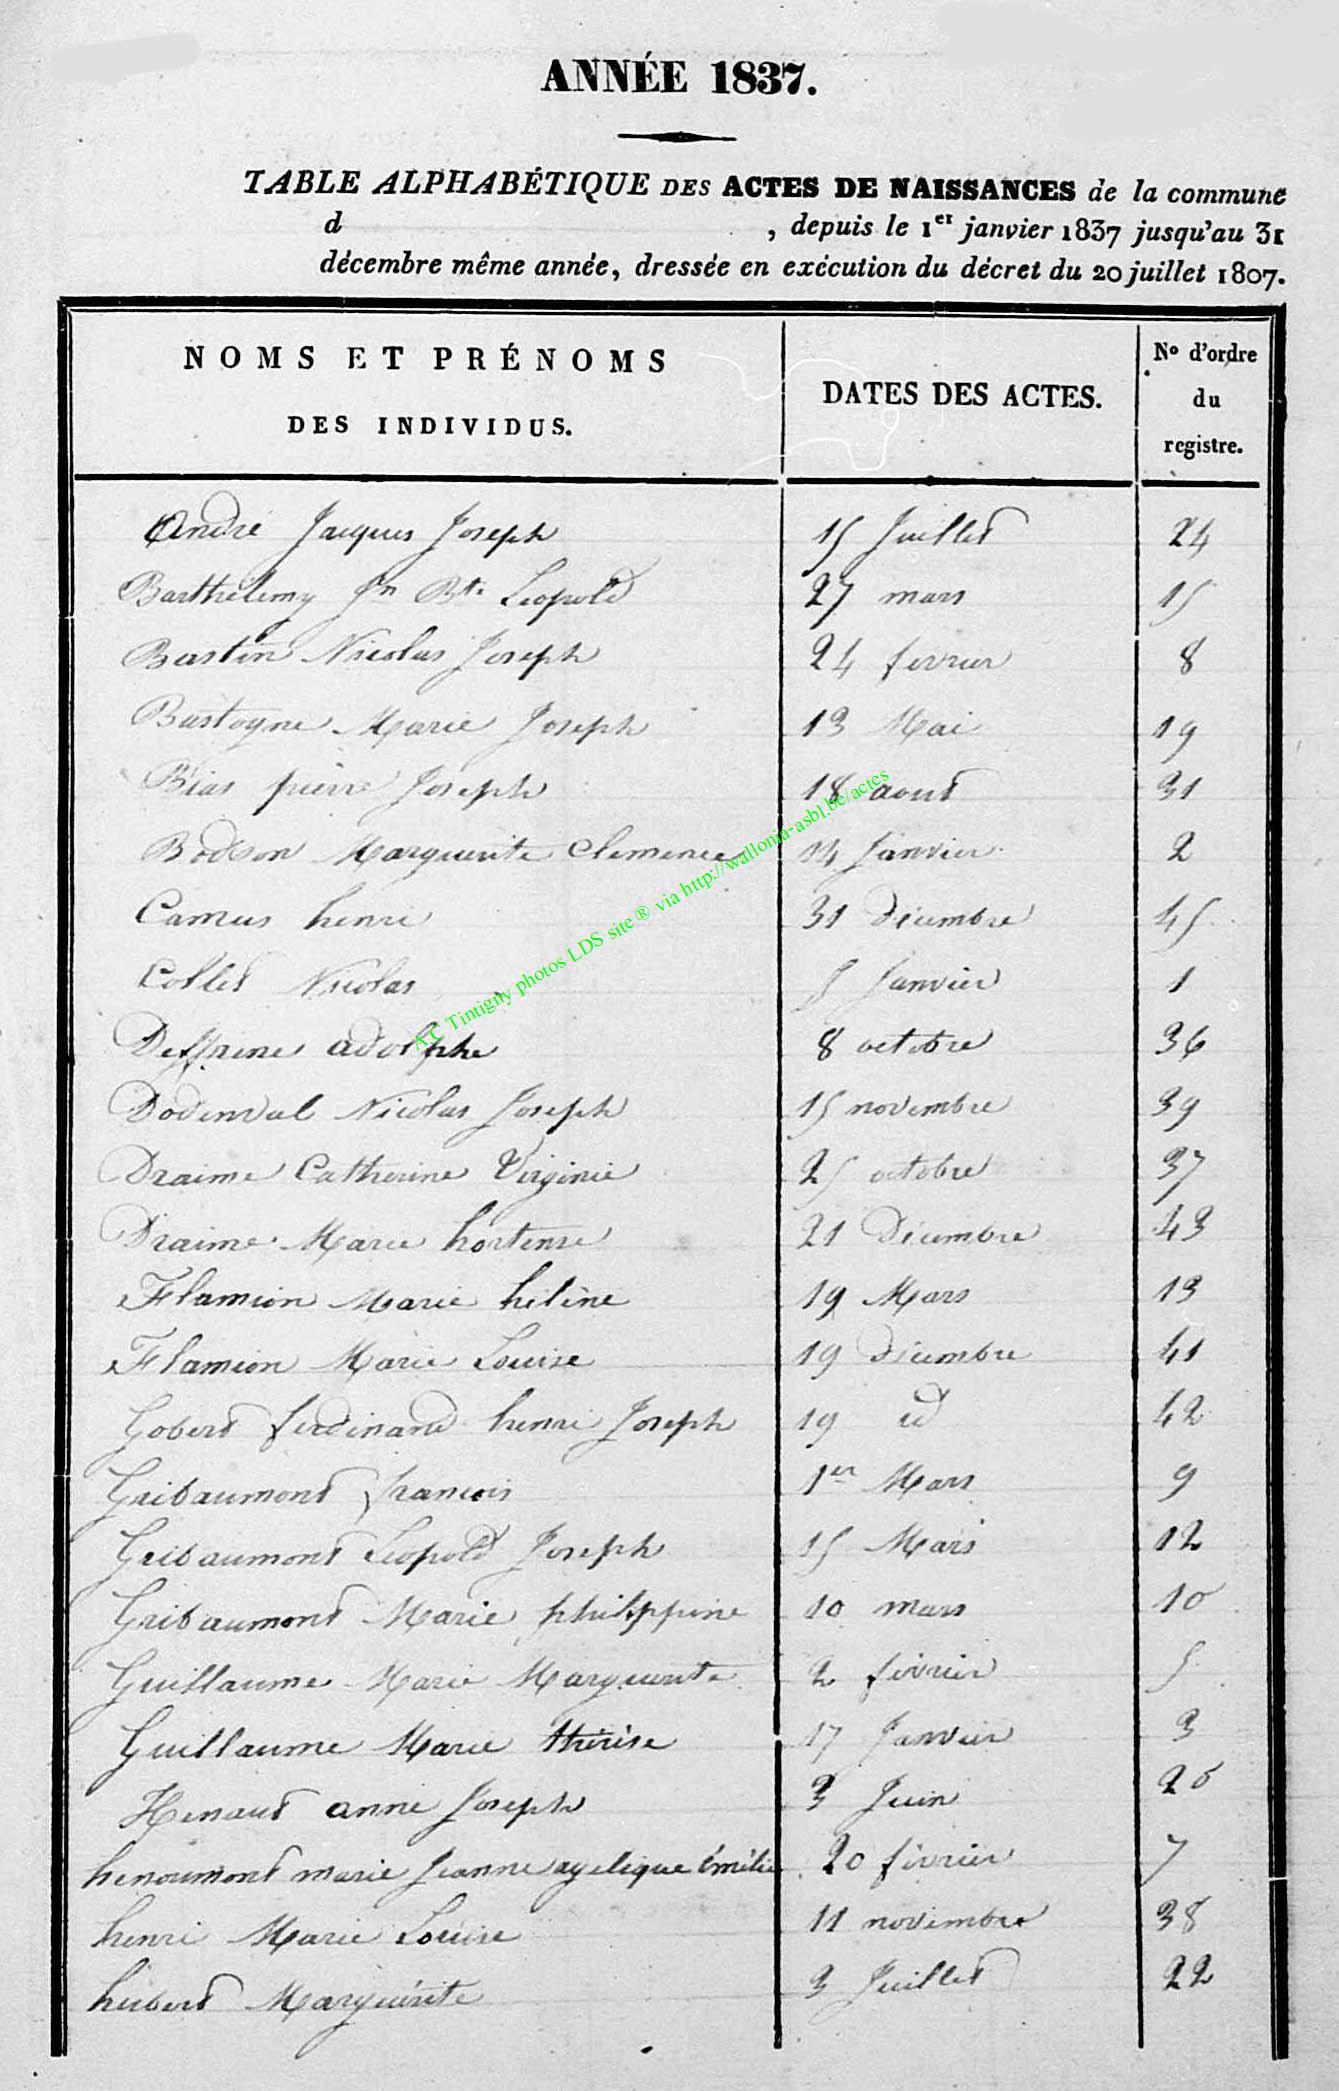 ANNÉE 1837.
TABLE ALPHABÉTIQUE DES ACTES DE NAISSANCES de la commune
d , depuis le 1er janvier 1837 jusqu'au 31
décembre même année, dressée en exécution du décret du 20 juillet 1807.
NOMS ET PRÉNOMS DES INDIVIDUS. DATES DES ACTES. No d'ordre du registre.
André Jacques Joseph 15 Juillet 24
Barthélemy Jn Bte Leopold 27 mars 15
Bastin Nicolas Joseph 24 fevrier 8
Bastogne Marie Joseph 13 Mai 19
Bias pierre Joseph 18 aout 31
Bodson Marguerite Clemence 14 Janvier 2
Camus henri 31 Décembre 45
Collet Nicolas 5 Janvier 1
adolphe 8 octobre 36
Dodinval Nicolas Joseph 15 novembre 39
Draime Catherine Virginie 25 octobre 37
Draime Marie hortense 21 Décembre 43
Flamion Marie hélène 19 Mars 13
Flamion Marie Louise 19 Décembre 41
Gobert ferdinand henri Joseph 19 id 42
Gribaumont francois 1er Mars 9
Gribaumont Leopold Joseph 15 Mars 12
Gribaumont Marie philippine 10 mars 10
Guillaume Marie Marguerite 2 février 5
Guillaume Marie thérèse 17 Janvier 3
Henaut anne Joseph 3 Juin 20
henoumont marie Jeanne agelique émélie 20 février 7
henri Marie Louise 11 novembre 38
hubert Marguérite 3 Juillet 22
AC Tintigny photos LDS site® via http://wallonia-asbl.be/actes